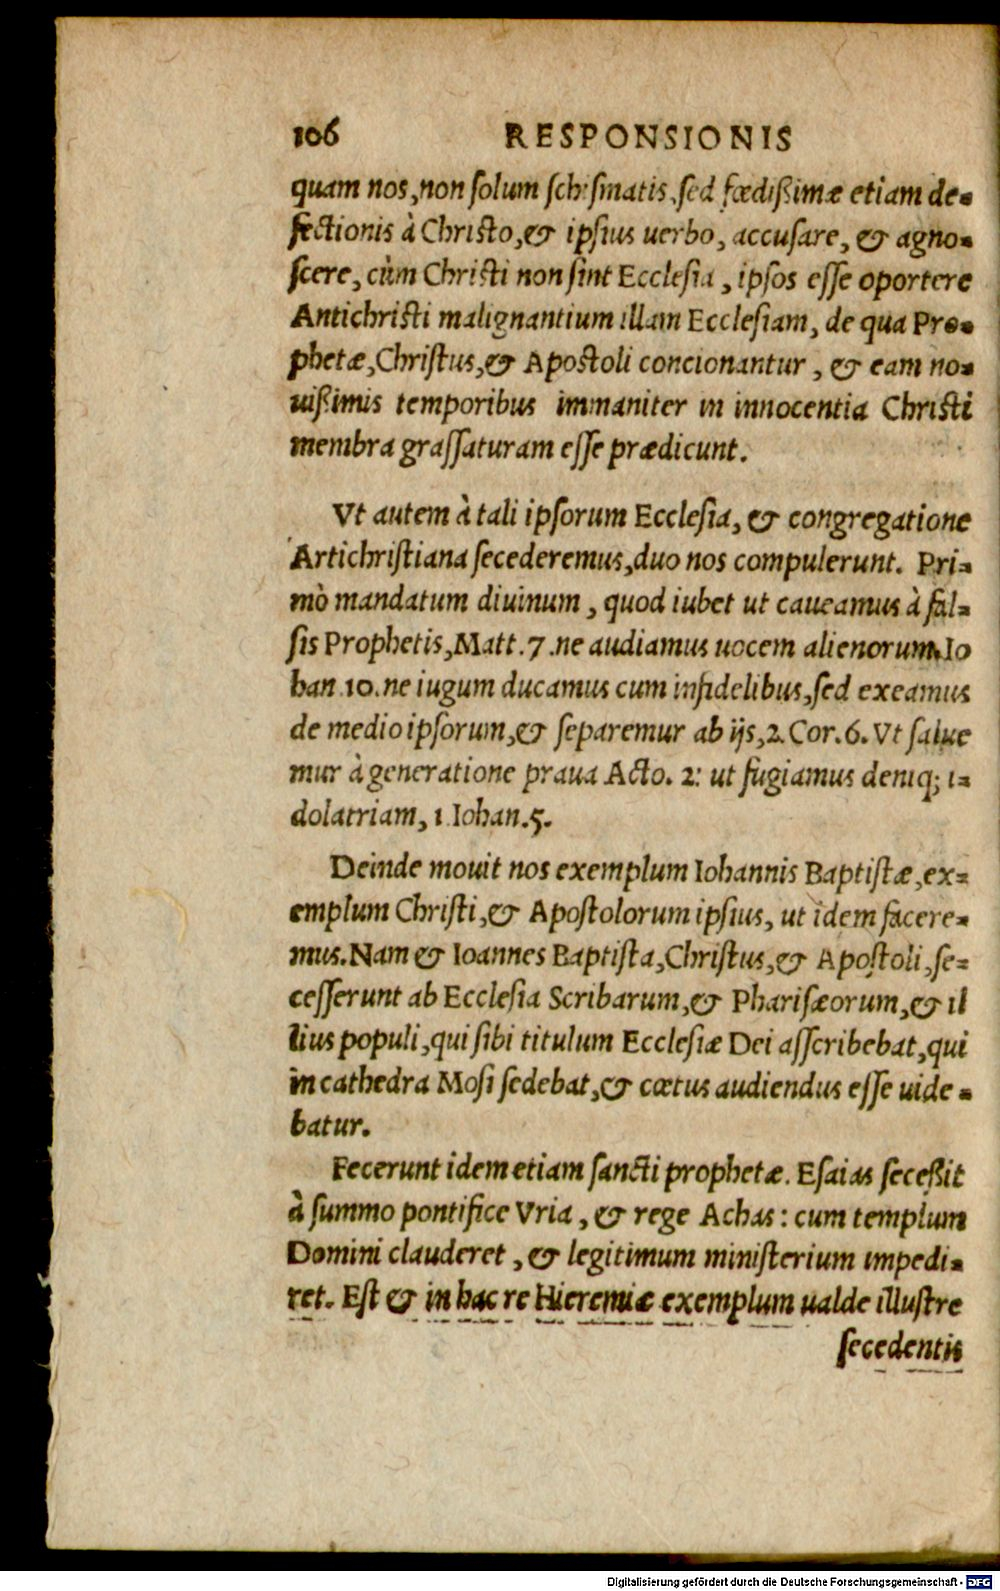 106 RESPONSIONIS
quam nos, non solum schismatis, sed fœdißimæ etiam de-
fectionis à Christo, & ipsius uerbo, accusare, & agno-
scere, cùm Christi non sint Ecclesia, ipsos esse oportere
Antichristi malignantium illam Ecclesiam, de qua Pro-
phetæ, Christus, & Apostoli concionantur, & eam no-
uißimis temporibus immaniter in innocentia Christi
membra grassaturam esse prædicunt.
Vt autem à tali ipsorum Ecclesia, & congregatione
Artichristiana secederemus, duo nos compulerunt. Pri-
mò mandatum diuinum, quod iubet ut caueamus à fal-
sis Prophetis, Matt. 7. ne audiamus uocem alienorum. Io
han. 10. ne iugum ducamus cum infidelibus, sed exeamus
de medio ipsorum, & separemur ab ijs, 2. Cor. 6. Vt salue
mur à generatione praua Acto. 2: ut fugiamus deniq; i-
dolatriam, 1 Iohan. 5.
Deinde mouit nos exemplum Iohannis Baptistæ, ex-
emplum Christi, & Apostolorum ipsius, ut idem facere-
mus. Nam & Ioannes Baptista, Christus, & Apostoli, se-
cesserunt ab Ecclesia Scribarum, & Pharisæorum, & il
lius populi, qui sibi titulum Ecclesiæ Dei asscribebat, qui
in cathedra Mosi sedebat, & cœtus audiendus esse uide-
batur.
Fecerunt idem etiam sancti prophetæ. Esaias seceßit
à summo pontifice Vria, & rege Achas: cum templum
Domini clauderet, & legitimum ministerium impedi-
ret. Est & in hac re Hieremiæ exemplum ualde illustre
secedentis
Digitalisierung gefördert durch die Deutsche Forschungsgemeinschaft - DFG